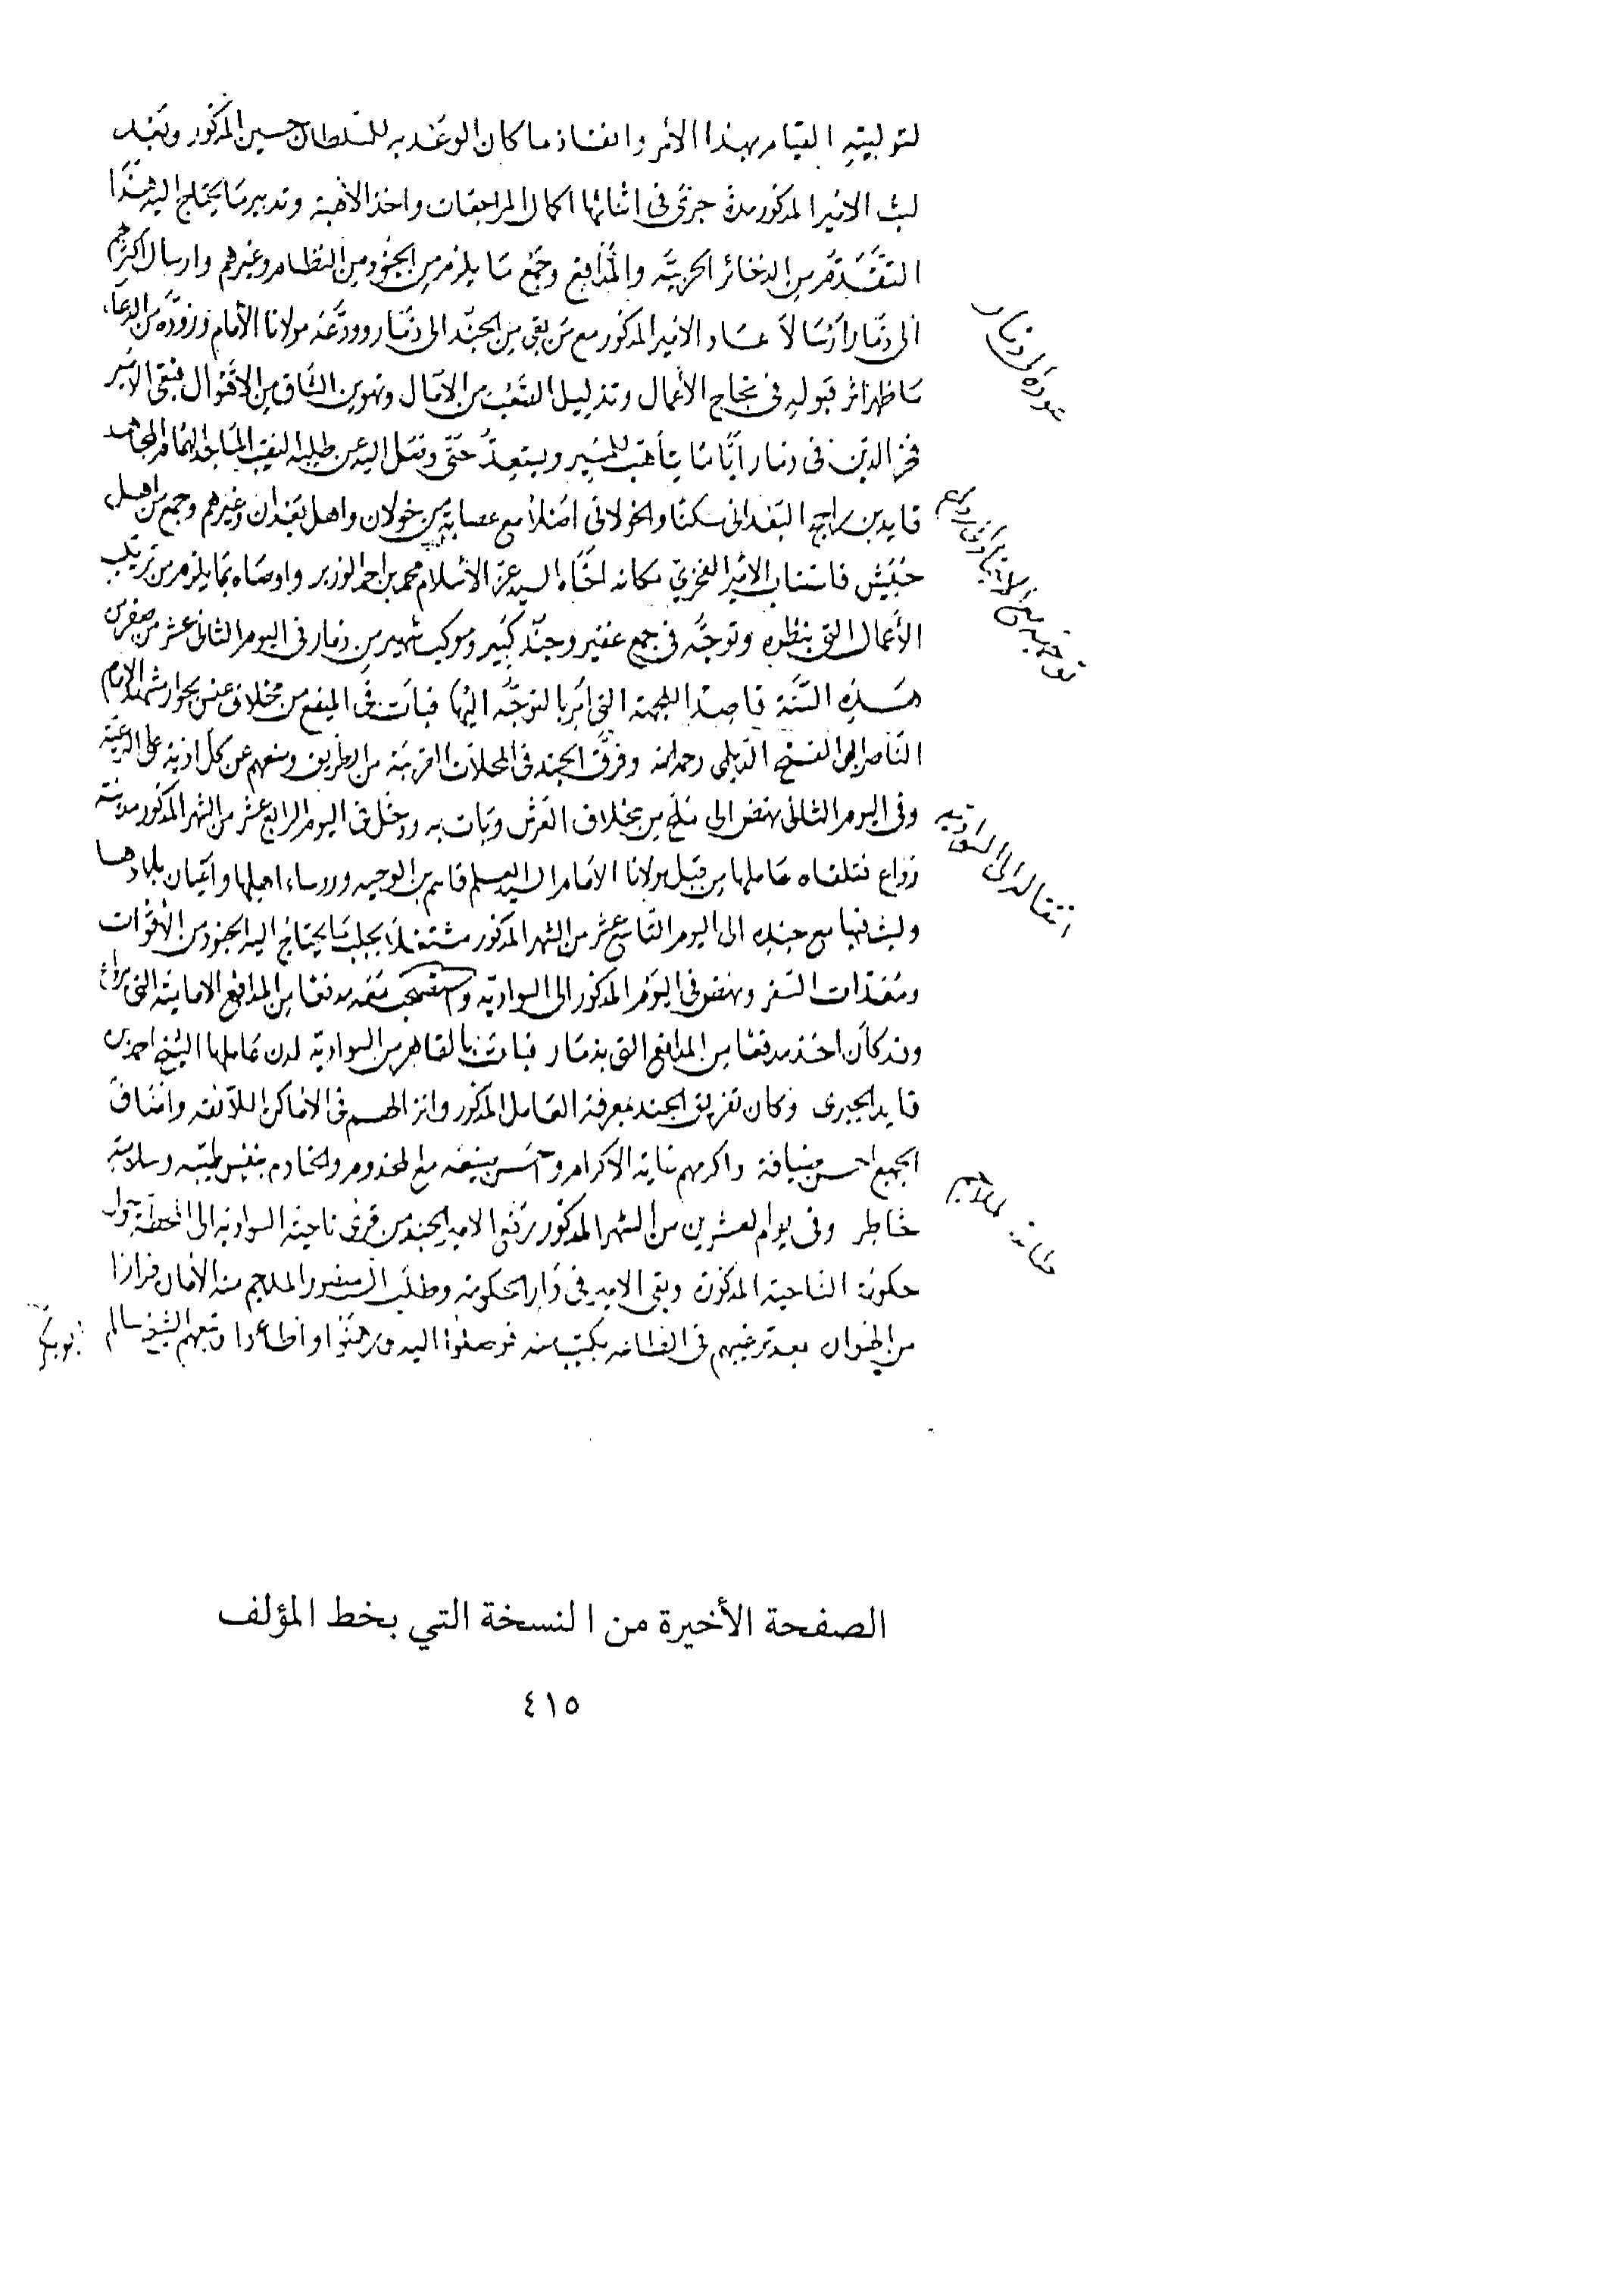 لتوليته القيام بهذا الأمر وانفاذ ما كان الوعد به للسلطان حسين المذكور وبعد
لبث الامير المذكور مدة جرى في اثنائها اكمال المراجعات واخذ الأهبة وتدبير ما يحتاج اليه هذا
التقدم من الذخائر الحربية والمدافع وجمع ما يلزم من الجنود من النظام وغيرهم وارسال اكثرهم
الى ذمار ارسالا عاد الامير المذكور مع من بقي من الجند الى ذمار وودعه مولانا الأمام وزوده من الدعاء
ما ظهر اثر قبوله في نجاح الأعمال وتذليل الصعب من الآمال وتهوين الشاق من الاقوال فبقي الامير
فخر الدين في ذمار أياما يتأهب للمسير ويستعد حتى وصل اليه عن طلبه النقيب الماجد الهمام المجاهد
قايد بن راجح البعداني سكنا والخولاني اصلا مع عصابة من خولان واهل بعدان وغيرهم وجمع من اهل
حبيش فاستناب الامير الفخري مكانه اخاه السيد عز الاسلام محمد بن احمد الوزير واوصاه بما يلزم من ترتيب
الأعمال التي بنظره وتوجه في جمع غفير وجند كبير وموكب شهير من ذمار في اليوم الثاني عشر من صفر من
هذه السنة قاصدا للجهة التي أمر بالتوجه اليها فبات في الميفع من مخلاف عنس بجوار مشهد الامام
الناصر ابي الفتح الديلمي رحمه الله وفرق الجند في المحلات القريبة من الطريق ومنعهم عن كل اذية على الرعية
وفي اليوم الثاني نهض الى ملح من مخلاف العرش وبات به ودخل في اليوم الرابع عشر من الشهر المذكور مدينة
رداع فتلقاه عاملها من قبل مولانا الامام السيد العلم قاسم بن الوجيه ورؤساء اهلها واعيان بلادها
ولبث فيها مع جنده الى اليوم التاسع عشر من الشهر المذكور مشتغلا بجلب ما يحتاج اليه الجنود من الأقوات
ومعدات السفر ونهض في اليوم المذكور الى السوادية واستصحب معه مدفعا من المدافع الامامية التي برداع
وقد كان اخذ مدفعا من المدافع التي بذمار فبات بالقاهر من السوادية لدن عاملها الشيخ احمد بن
قايد الجبري وكان تفريق الجند بمعرفة العامل المذكور وانزالهم في الاماكن اللائقة واضاف
الجميع احسن ضيافة واكرمهم غاية الاكرام وآنس ضيفه مع المخدوم والخادم بنفس طيبة وسلامة
خاطر وفي يوم العشرين من الشهر المذكور رفع الامير الجند من قرى ناحية السوادية الى المحطة جوار
حكومة الناحية المذكورة وبقي الامير في دار الحكومة وطلب السيفور الملاجم منه الأمان فرارا
من الهوان بعد ترغيبهم في الطاعة بكتب منه فوصلوا اليه ورهنوا واطاعوا وتبعهم الشيخ سالم
ابو بكر
عوده الى ذمار
انتقاله الى السوادية
طاعة الملاجم
الصفحة الأخيرة من النسخة التي بخط المؤلف
٤١٥